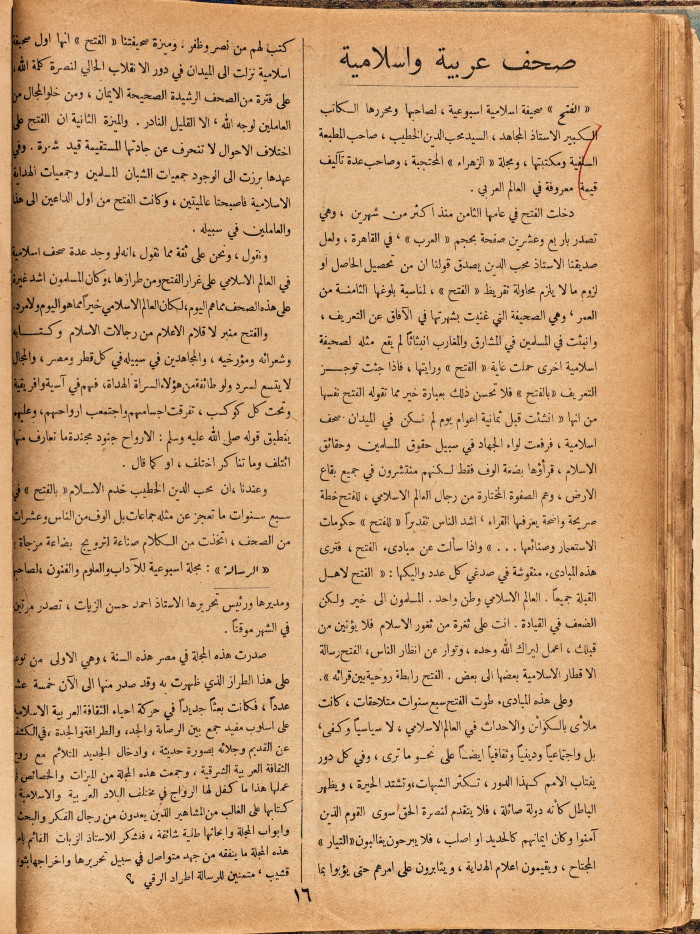 صحف عربية واسلامية
« الفتح » صحيفة اسلامية اسبوعية ، لصاحبها ومحررها الكاتب
الكبير الاستاذ المجاهد ، السيد محب الدين الخطيب ، صاحب المطبعة
السلفية ومكتبتها ، ومجلة « الزهراء » المحتجبة ، وصاحب عدة تآليف
قيمة معروفة في العالم العربي .
دخلت الفتح في عامها الثامن منذ اكثر من شهرين ، وهي
تصدر باربع وعشرين صفحة بحجم « العرب » ، في القاهرة ، ولعل
صديقنا الاستاذ محب الدين يصدق قولنا ان من تحصيل الحاصل او
لزوم ما لا يلزم محاولة تقريظ « الفتح » ، لمناسبة بلوغها الثامنة من
العمر ، وهي الصحيفة التي غنيت بشهرتها في الآفاق عن التعريف ،
وانبثت في المسلمين في المشارق والمغارب انبثاثا لم يقع مثله لصحيفة
اسلامية اخرى حملت غاية « الفتح » ورايتها ، فاذا جئت توجز
التعريف « بالفتح » فلا تحسن ذلك بعبارة خير مما تقوله الفتح نفسها
من انها « انشئت قبل ثمانية اعوام يوم لم تكن في الميدان صحف
اسلامية ، فرفعت لواء الجهاد في سبيل حقوق المسلمين وحقائق
الاسلام ، قراؤها بضعة الوف فقط لكنهم منتشرون في جميع بقاع
الارض ، وهم الصفوة المختارة من رجال العالم الاسلامي ، للفتح خطة
صريحة واضحة يعرفها القراء ، اشد الناس تقديراً « للفتح » حكومات
الاستعمار وصنائعها . . . » واذا سألت عن مبادىء الفتح ، فترى
هذه المبادىء منقوشة في صدغي كل عدد واليكها : « الفتح لاهل
القبلة جميعاً . العالم الاسلامي وطن واحد . المسلمون الى خير ولكن
الضعف في القيادة . انت على ثغرة من ثغور الاسلام فلا يؤتين من
قبلك ، اعمل ليراك الله وحده ، وتوار عن انظار الناس ، الفتح رسالة
الاقطار الاسلامية بعضها الى بعض . الفتح رابطة روحية بين قرائه » .
وعلى هذه المبادىء طوت الفتح سبع سنوات متلاحقات ، كانت
ملأى بالكوائن والاحداث في العالم الاسلامي ، لا سياسياً وكفى ،
بل واجتماعياً ودينياً وثقافياً ايضاً على نحو ما ترى ، وفي كل دور
يغتاب الامم كهذا الدور ، تكثر الشبهات ، وتشتد الحيرة ، ويظهر
الباطل كأنه دولة صائلة ، فلا يتقدم لنصرة الحق سوى القوم الذين
آمنوا وكان ايمانهم كالحديد او اصلب ، فلا يبرحون يغالبون « التيار »
المجتاح ، ويقيمون اعلام الهداية ، ويثابرون على امرهم حتى يؤوبوا بما
كتب لهم من نصر وظفر . وميزة صحيفتنا « الفتح » انها اول صحيفة
اسلامية نزلت الى الميدان في دور الانقلاب الحالي لنصرة كلمة الله ،
على فترة من الصحف الرشيدة الصحيحة الايمان ، ومن خلو المجال من
العاملين لوجه الله ، الا القليل النادر . والميزة الثانية ان الفتح على
اختلاف الاحوال لا تنحرف عن جادتها المستقيمة قيد شعرة . وفي
عهدها برزت الى الوجود جمعيات الشبان المسلمين وجمعيات الهداية
الاسلامية فاصبحتا عالميتين ، وكانت الفتح من اول الداعين الى هذا
والعاملين في سبيله .
ونقول ، ونحن على ثقة مما نقول ، انه لو وجد عدة صحف اسلامية
في العالم الاسلامي على غرار الفتح ومن طرازها ، وكان المسلمون اشد غيرة
على هذه الصحف مما هم اليوم ، لكان العالم الاسلامي خيراً مما هو اليوم ولا مرد .
والفتح منبر لاقلام الاعلام من رجالات الاسلام وكتابه
وشعرائه ومؤرخيه ، والمجاهدين في سبيله في كل قطر ومصر ، والمجال
لا يتسع لسرد ولو طائفة من هؤلاء السراة الهداة ، فهم في آسية وافريقية
وتحت كل كوكب ، تفرقت اجسامهم واجتمعت ارواحهم ، وعليهم
ينطبق قوله صلى الله عليه وسلم : الارواح جنود مجندة ما تعارف منها
ائتلف وما تناكر اختلف ، او كما قال .
وعندنا ، ان محب الدين الخطيب خدم الاسلام « بالفتح » في
سبع سنوات ما تعجز عن مثله جماعات بل الوف من الناس وعشرات
من الصحف ، اتخذت من الكلام صناعة لترويج بضاعة مزجاة .
« الرسالة » : مجلة اسبوعية للآداب والعلوم والفنون ، لصاحبها
ومديرها ورئيس تحريرها الاستاذ احمد حسن الزيات ، تصدر مرتين
في الشهر موقتاً .
صدرت هذه المجلة في مصر هذه السنة ، وهي الاولى من نوعها
على هذا الطراز الذي ظهرت به وقد صدر منها الى الآن خمسة عشر
عدداً ، فكانت بعثاً جديداً في حركة احياء الثقافة العربية الاسلامية
على اسلوب مفيد جمع بين الرصانة والجد ، والطرافة والجدة ، في الكشف
عن القديم وجلائه بصورة حديثة ، وادخال الجديد المتلائم مع روح
الثقافة العربية الشرقية ، وجمعت هذه المجلة من الميزات والخصائص في
عملها هذا ما كفل لها الرواج في مختلف البلاد العربية والاسلامية
كتابها على الغالب من المشاهير الذين يعدون من رجال الفكر والبحث
وابواب المجلة وابحاثها طلية شائقة ، فنشكر للاستاذ الزيات القائم بامر
هذه المجلة ما ينفقه من جهد متواصل في سبيل تحريرها واخراجها بثوب
قشيب ، متمنين للرسالة اطراد الرقي ؟
١٦